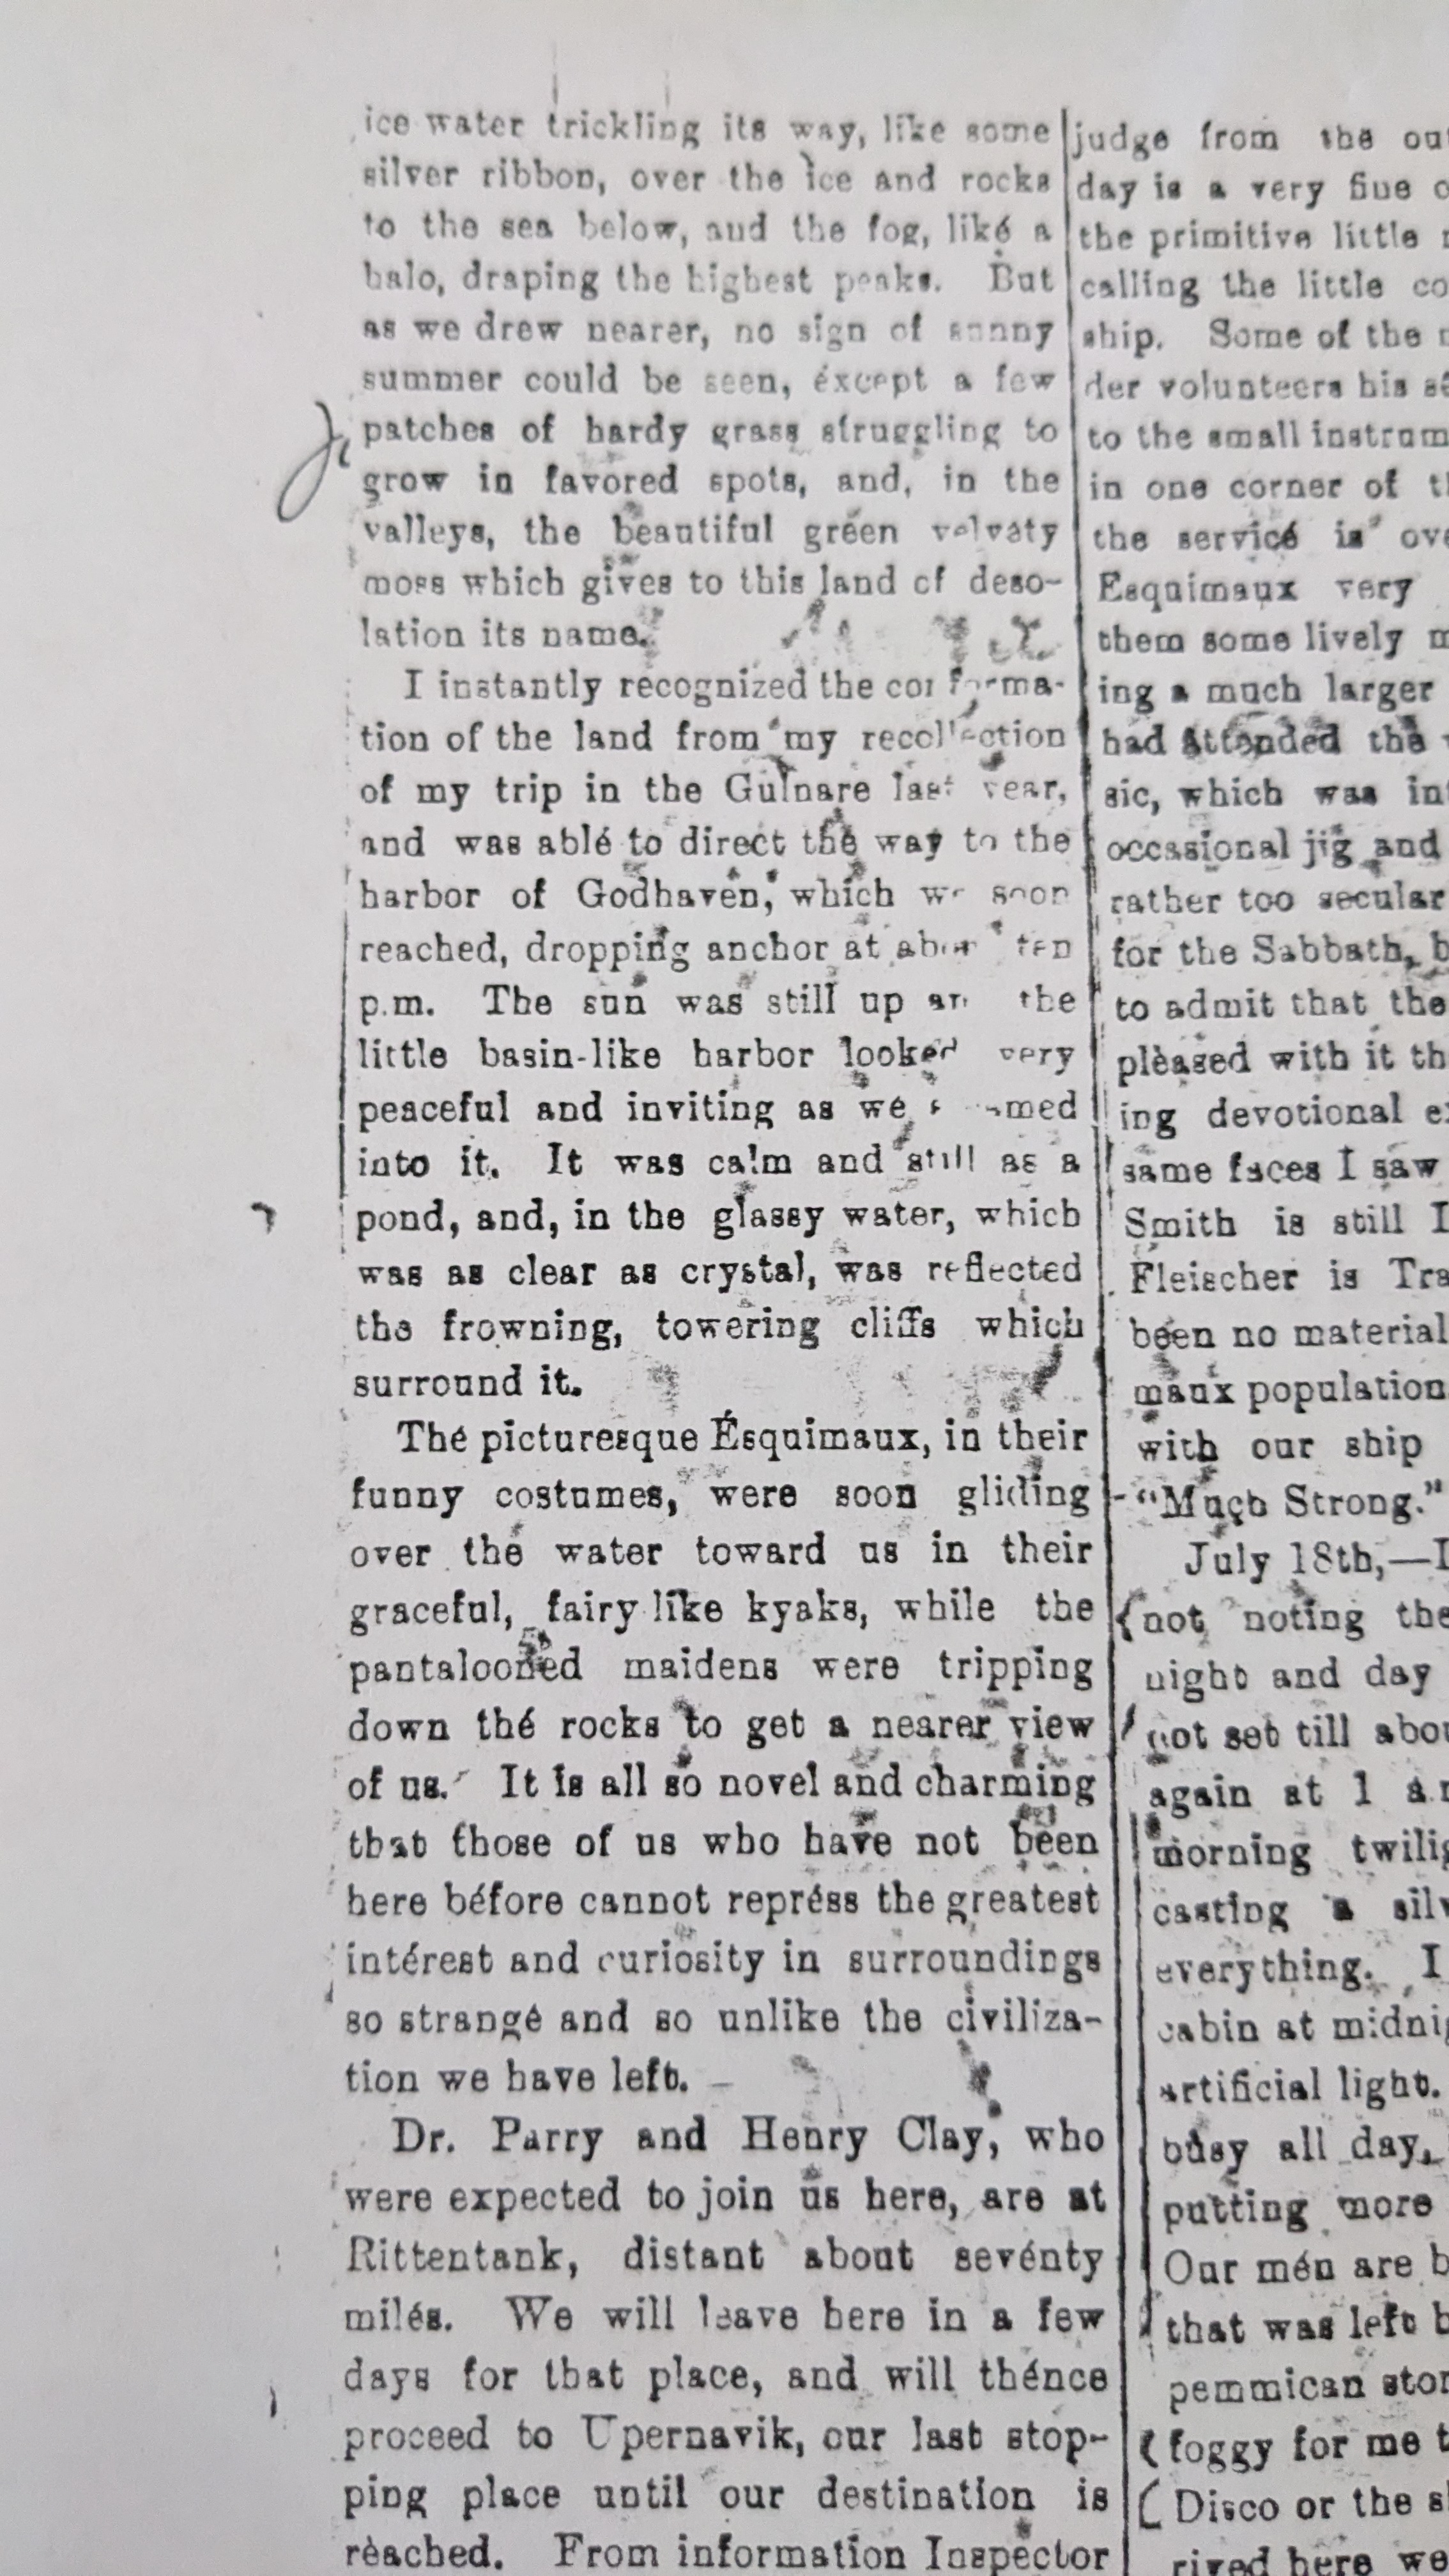 ice water trickling its way, like some
silver ribbon, over the ice and rocks
to the sea below, and the fog, like a
halo, draping the highest peaks. But
as we drew nearer, no sign of sunny
summer could be seen, except a few
patches of hardy grass struggling to
grow in favored spots, and, in the
valleys, the beautiful green velvaty
moss which gives to this land of deso-
lation its name.
I instantly recognized the conforma-
tion of the land from my recollection
of my trip in the Gulnare last year,
and was able to direct the way to the
harbor of Godhaven, which we soon
reached, dropping anchor at about ten
p.m. The sun was still up and the
little basin-like harbor looked very
peaceful and inviting as we
into it. It was calm and still as a
pond, and, in the glassy water, which
was as clear as crystal, was reflected
the frowning, towering cliffs which
surround it.
The picturesque Esquimaux, in their
funny costumes, were soon gliding
over the water toward us in their
graceful, fairy like kyaks, while the
pantalooned maidens were tripping
down the rocks to get a nearer view
of us. It is all so novel and charming
that those of us who have not been
here before cannot repress the greatest
interest and curiosity in surroundings
so strange and so unlike the civiliza-
tion we have left.
Dr. Parry and Henry Clay, who
were expected to join us here, are at
Rittentank, distant about seventy
miles. We will leave here in a few
days for that place, and will thence
proceed to Upernavik, our last stop-
ping place until our destination is
reached. From information Inspector
judge from the
day is a very fine
the primitive little
calling the little
ship. Some of the
der volunteers his
to the small
in one corner of
the service is
Esquimaux very
them some lively
ing a much larger
had attended the
sic, which was
occasional jig and
rather too secular
for the Sabbath,
to admit that the
pleased with it
ing devotional
same faces I saw
Smith is still
Fleischer is
been no material
maux population
with our ship
"Much Strong."
July 18th,—
not noting the
night and day
not set till
again at 1
morning
casting a
everything. I
cabin at
artificial light.
busy all day,
putting more
Our men are
that was left
pemmican
foggy for me
Disco or the
rived here we